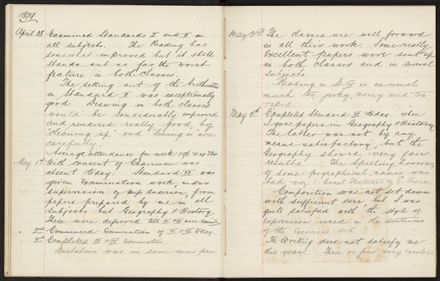 1919
April 28. Examined Standards I and II in
all subjects. The Reading has
somewhat improved but it still
stands out as far the worst
feature in both classes.
The setting out of the Arithmetic
in Standard I was exceptionally
good. Drawing in both classes
would be considerably improved
and rendered really good, by
"cleaning up" and being more
careful.
Average attendance for week
May 1st With consent of Chairman was
absent today. Standard VI was
given Examination work, under
supervision of Miss from
papers prepared by me in all
subjects but Geography & History.
There were
" 2nd Commenced Examination of today.
" 3rd Completed Examination.
Dictation was in some cases poor
May 3rd The classes are well forward
in all their work. Some really
Excellent papers were sent in
in both classes and in several
subjects.
Reading in is as usual
much too and too
rapid.
May 5th Completed Standard VI today when
I gave papers in Geography & History.
The latter was not by any
means satisfactory, but the
Geography showed very fair
results. The Spelling
of some Geographical names was
bad
Composition was not set down
with sufficient care but I was
quite satisfied with the style of
Expression used in the sentences
of the Exercises set.
The Writing does not satisfy me
this year. Two or four very careless